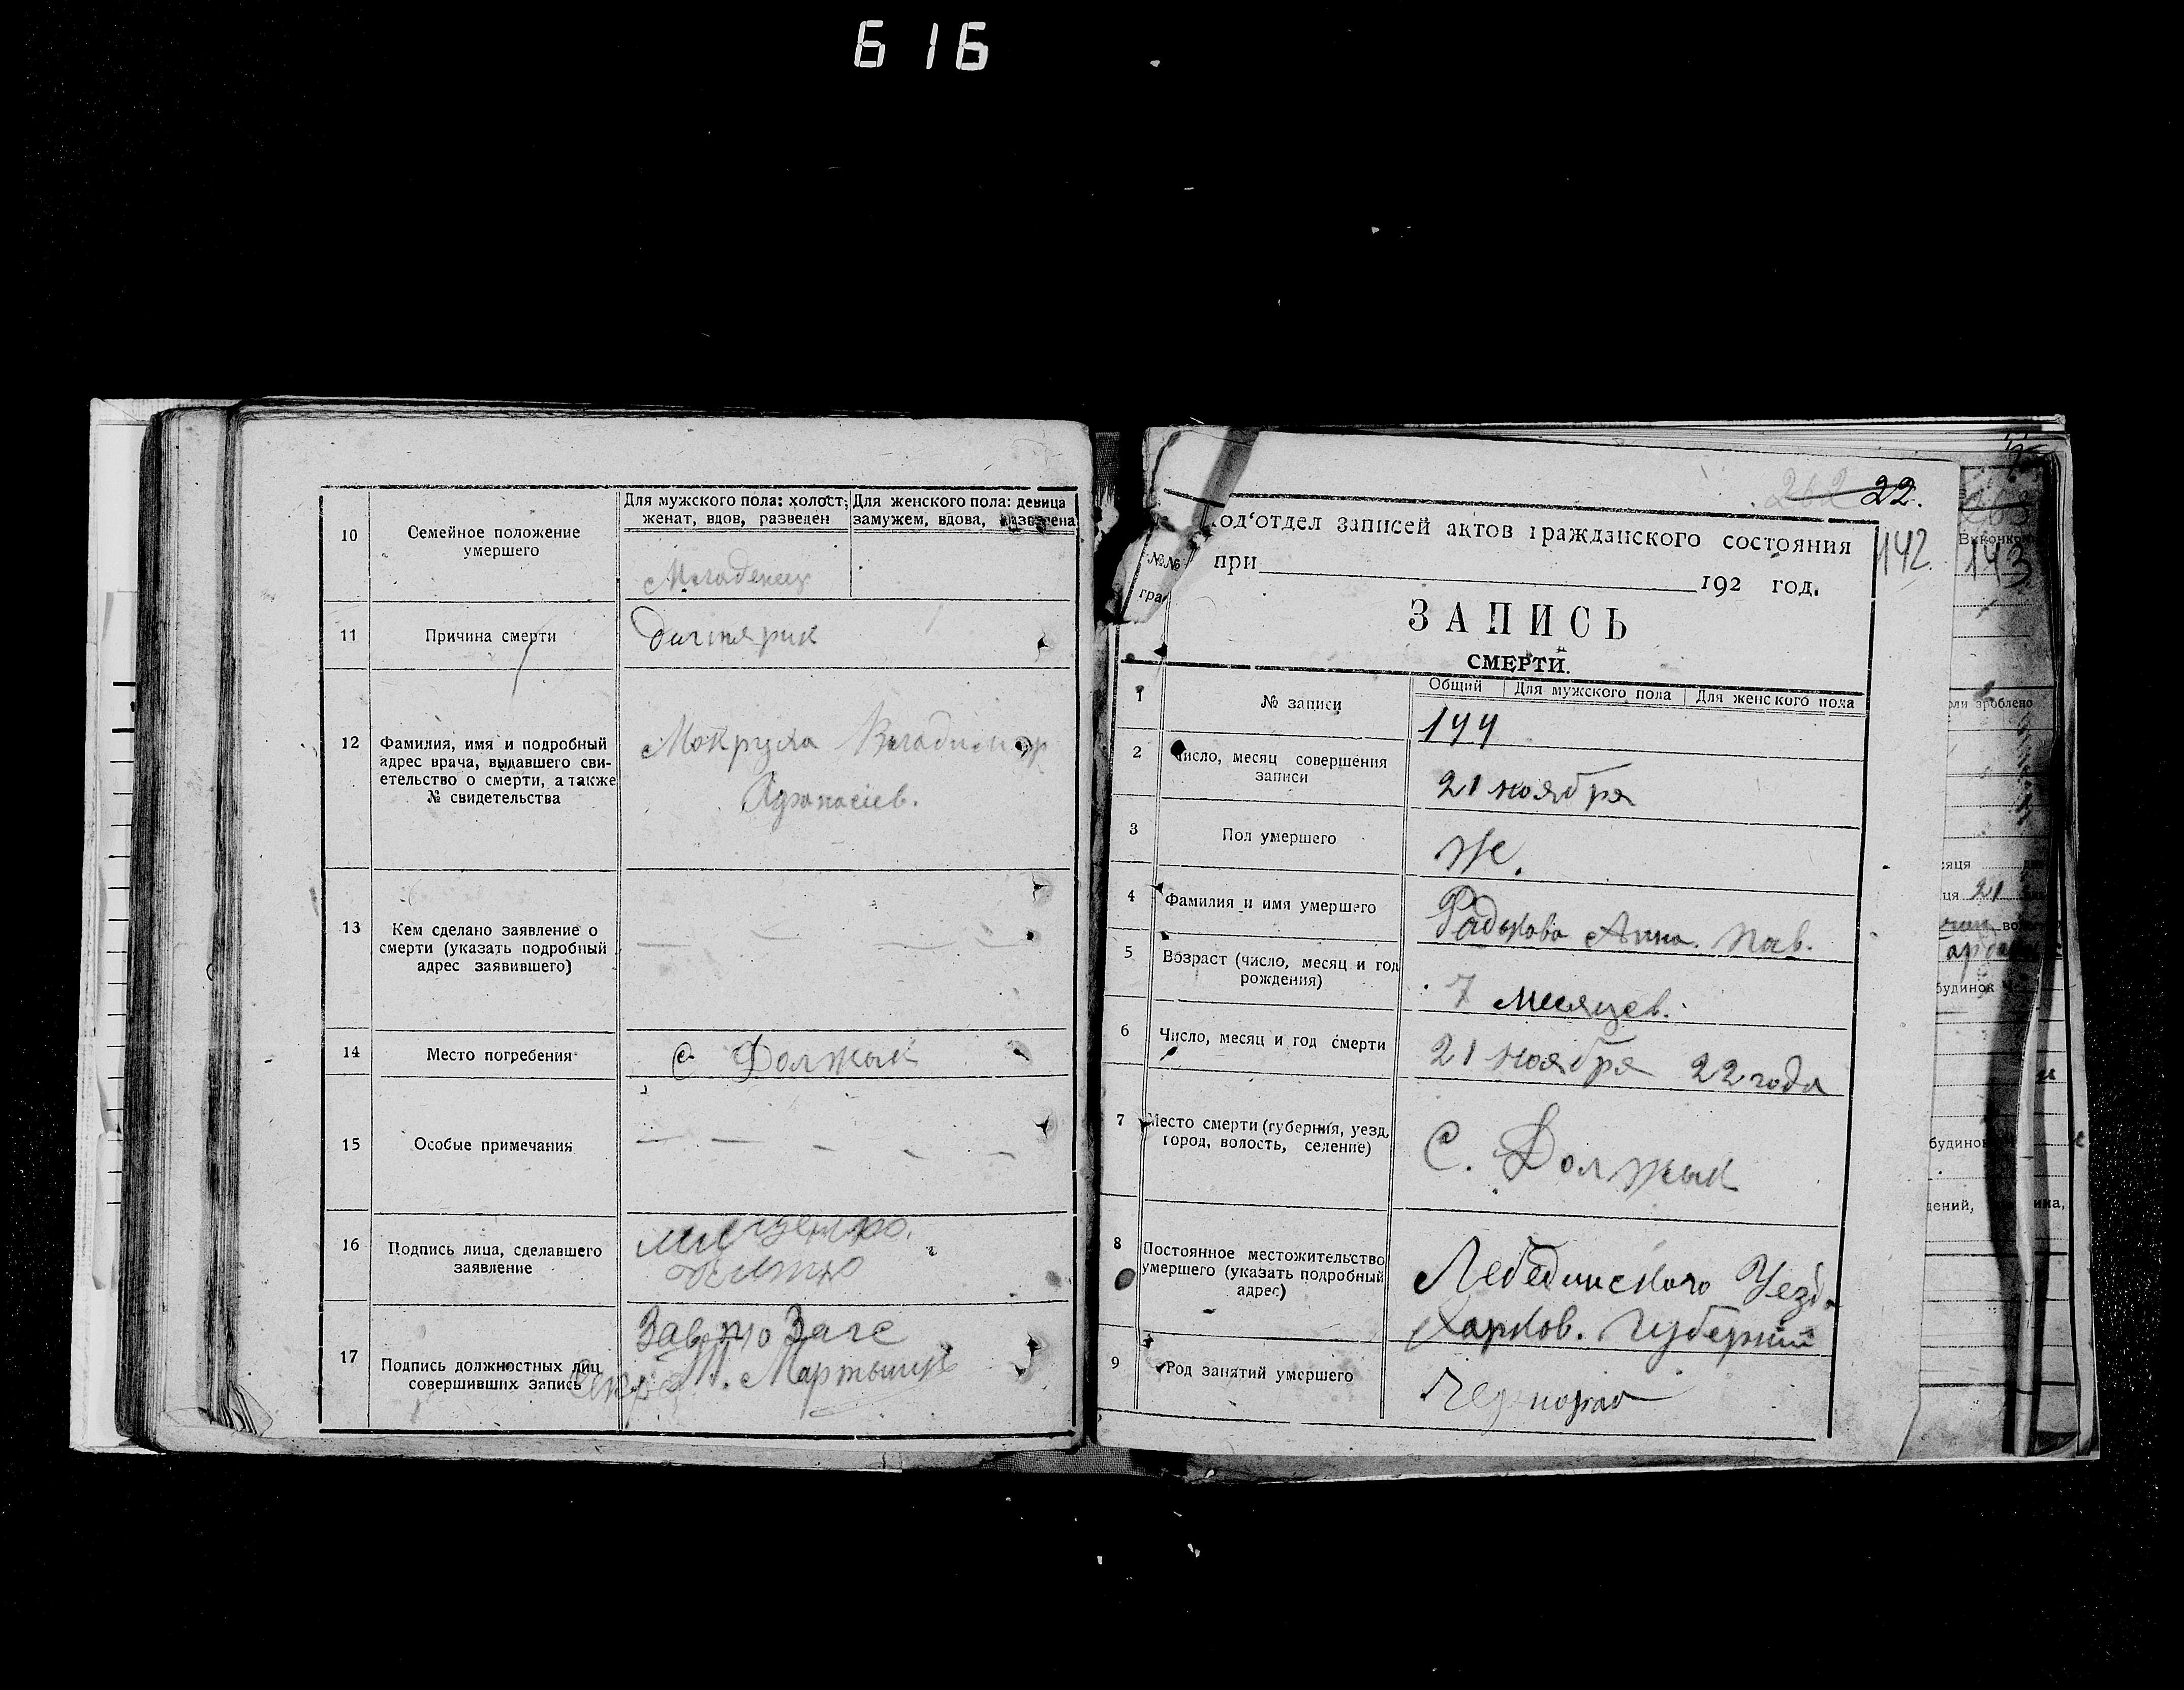 616
10
Семейное положение
умершего
Для мужского пола: холост,
женат, вдов, разведен
Для женского пола: девица
замужем, вдова, разведена
Младенец
11
Причина смерти
12
Фамилия, имя и подробный
адрес врача, выдавшего сви-
етельство о смерти, а также
№ свидетельства
Мокруха Владимир
Афанасіев.
13
Кем сделано заявление о
смерти (указать подробный
адрес заявившего)
14
Место погребения
С. Должык
15
Особые примечания
16
Подпись лица, сделавшего
заявление
17
Подпись должностных лиц
совершивших запись
Мартынив
262 22.
од'отдел записей актов гражданского состояния
142
№№
гра
при 192 год.
ЗАПИСЬ
СМЕРТИ.
Общий Для мужского пола Для женского пола
1
№ записи
144
2
Число, месяц совершения
записи
21 ноября
3
Пол умершего
Ж.
4
Фамилия и имя умершего
Радькова Анна. Пав.
5
Возраст (число, месяц и год
рождения)
7 месяцев.
6
Число, месяц и год смерти
21 ноября 22 года
7
Место смерти (губерния, уезд,
город, волость, селение)
С. Должык
8
Постоянное местожительство
умершего (указать подробный
адрес)
Лебединского Уезд.
Харков. Губернии
9
Род занятий умершего
263
Виконко
143
оли зроблено
сяця
ця 21
будинок
будинок
дений,